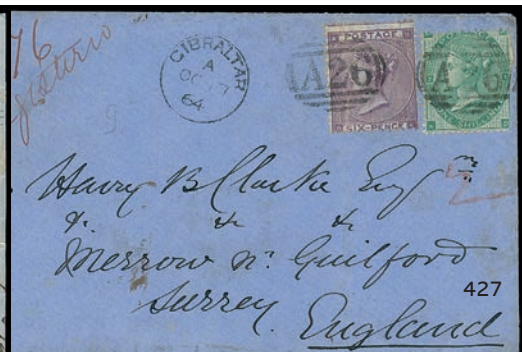 16
GIBRALTAR
A
OC 7
64
POSTAGE
A26
SIX-PENCE
A 6
Harry B Clarke Esqre
&. &. &
Merrow Nr. Guilford
Surrey.
England
427